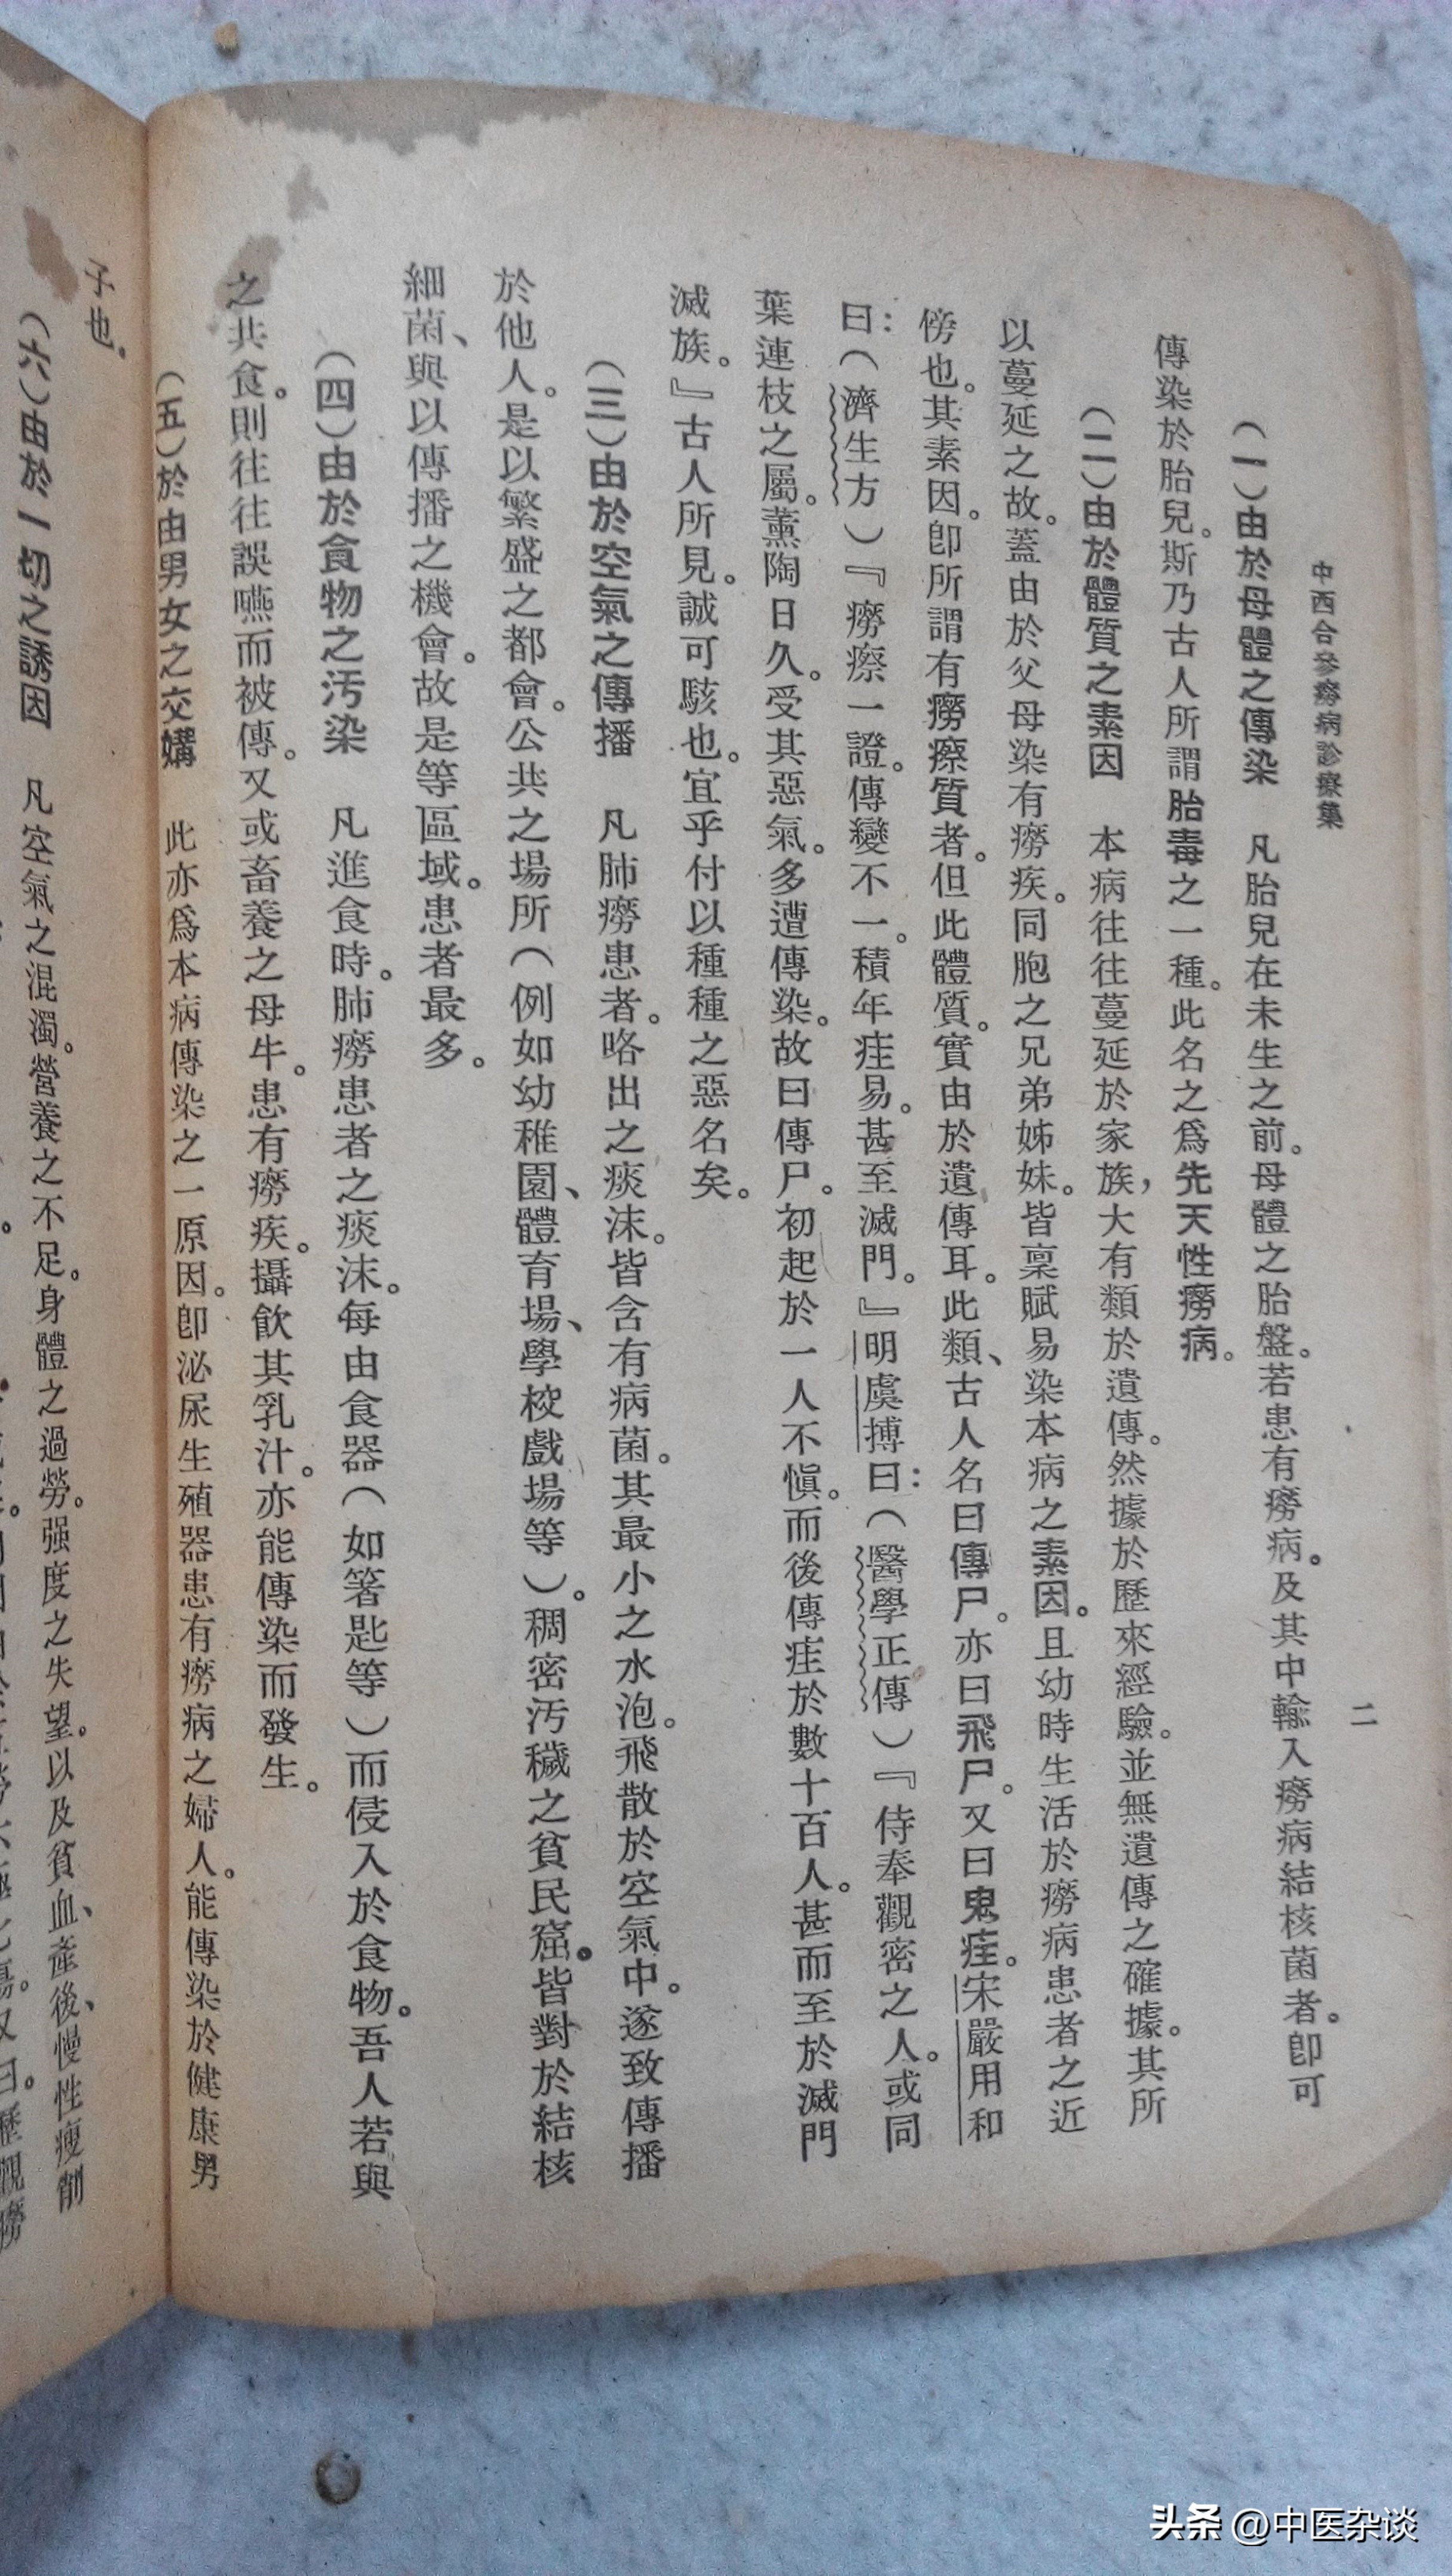 中西合參癆病診療集
二
（一）由於母體之傳染　凡胎兒在未生之前。母體之胎盤。若患有癆病。及其中輸入癆病結核菌者。卽可
傳染於胎兒。斯乃古人所謂胎毒之一種。此名之爲先天性癆病。
（二）由於體質之素因　本病往往蔓延於家族，大有類於遺傳。然據於歷來經驗。並無遺傳之確據。其所
以蔓延之故。蓋由於父母染有癆疾。同胞之兄弟姊妹。皆稟賦易染本病之素因。且幼時生活於癆病患者之近
傍也。其素因。卽所謂有癆瘵質者。但此體質。實由於遺傳耳。此類、古人名曰傳尸。亦曰飛尸。又曰鬼疰。宋嚴用和
曰：（濟生方）『癆瘵一證。傳變不一。積年疰易。甚至滅門。』明虞摶曰：（醫學正傳）『侍奉觀密之人。或同
葉連枝之屬。薰陶日久。受其惡氣。多遭傳染。故曰傳尸。初起於一人不愼。而後傳疰於數十百人。甚而至於滅門
滅族。』古人所見。誠可駭也。宜乎付以種種之惡名矣。
（三）由於空氣之傳播　凡肺癆患者。咯出之痰沫。皆含有病菌。其最小之水泡。飛散於空氣中。遂致傳播
於他人。是以繁盛之都會。公共之場所（例如幼稚園、體育場、學校戲場等）。稠密汚穢之貧民窟。皆對於結核
細菌、與以傳播之機會。故是等區域。患者最多。
（四）由於食物之汚染　凡進食時。肺癆患者之痰沫。每由食器（如箸匙等）而侵入於食物。吾人若與
之共食。則往往誤嚥而被傳。又或畜養之母牛。患有癆疾。攝飲其乳汁。亦能傳染而發生。
（五）於由男女之交媾　此亦爲本病傳染之一原因。卽泌尿生殖器患有癆病之婦人。能傳染於健康男
子也。
（六）由於一切之誘因　凡空氣之混濁。營養之不足。身體之過勞。强度之失望。以及貧血、產後、慢性瘦削
头条 @中医杂谈